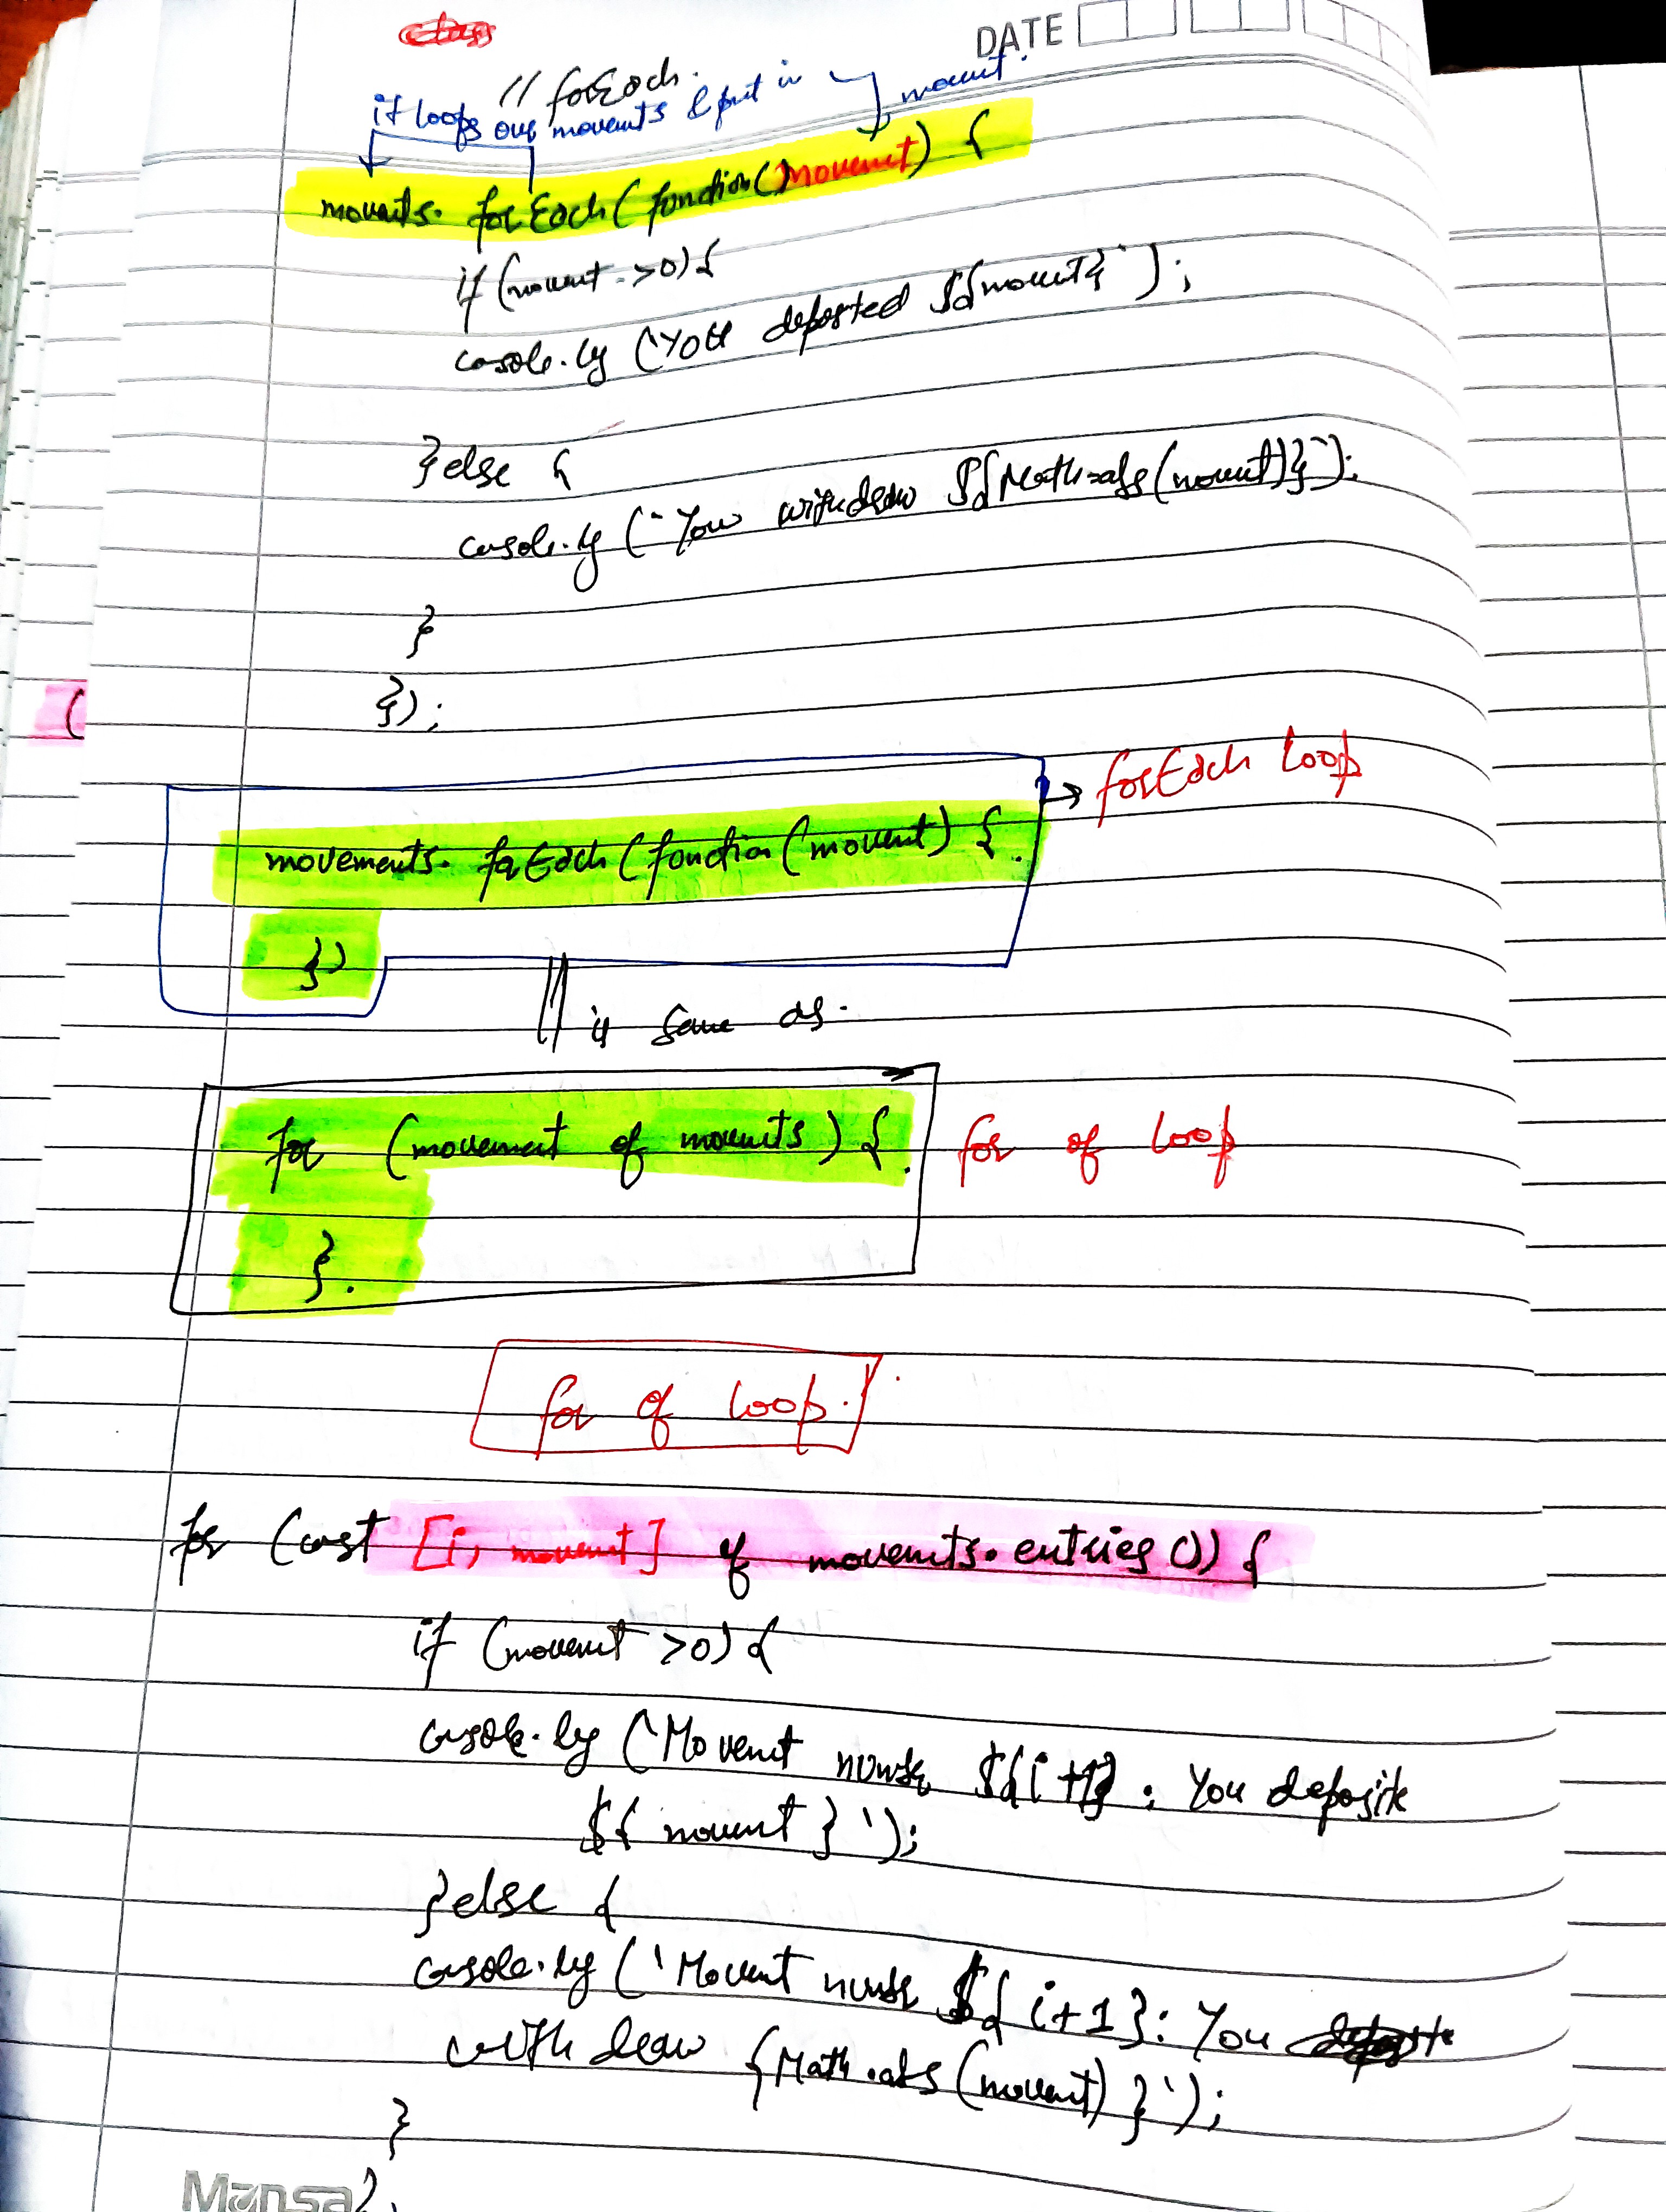 DATE
// forEach.
it loops our movemts & put in movemt.
movemts. forEach( function(movemt) {
if (movemt >0) {
console.log (`You deposted ${movemt}`);
}else {
console.log (`You withdraw ${Math.abs(movemt)}`);
}
});
(
movements. forEach (function (movemt) { → forEach loop
})
is same as.
for (movement of movemts) { for of loop
}.
for of loop.
for (const [i, movemt] of movemts.entries ()) {
if (movemt >0) {
console.log (`Movemt number ${i+1} : You deposite
${ movemt } `);
}else {
console.log (`Movemt number ${ i+1}: You
withdraw {Math.abs (movemt) } `);
}
Mansa